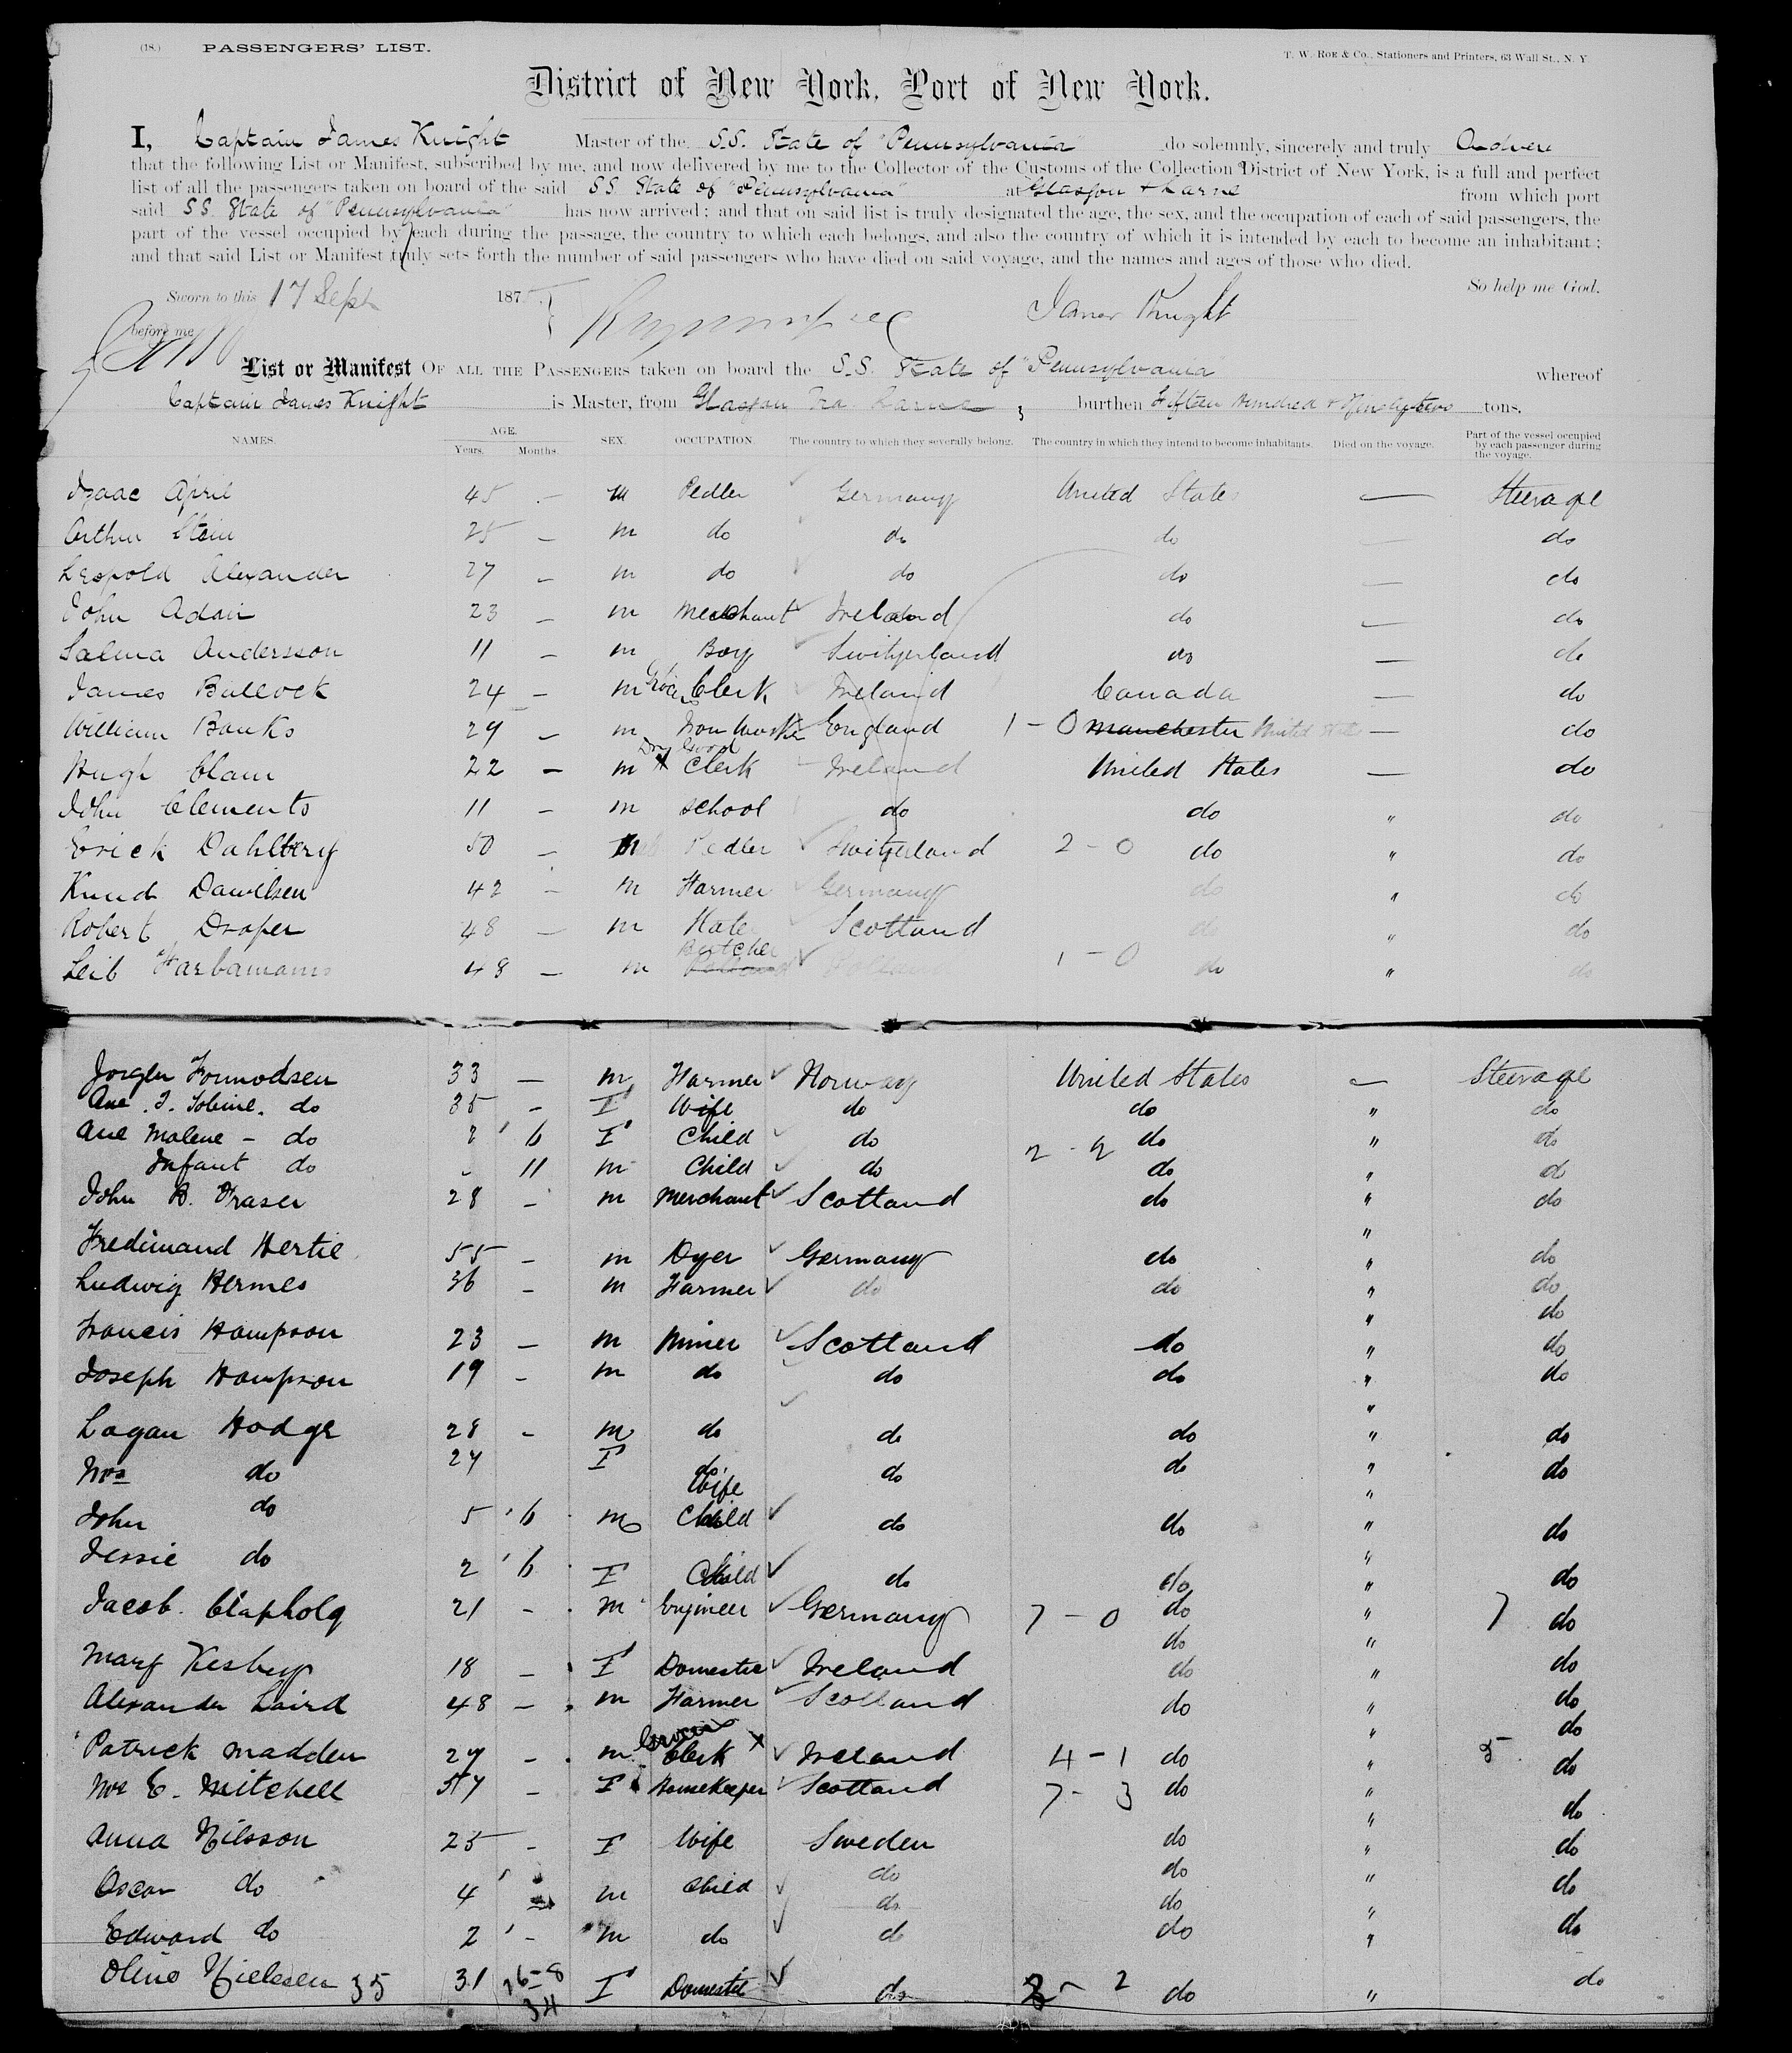 (18.) PASSENGERS' LIST. T. W. ROE & Co., Stationers and Printers, 63 Wall St., N. Y.
District of New York, Port of New York.
I, Captain James Knight Master of the S.S. State of "Pennsylvania" do solemnly, sincerely and truly
that the following List or Manifest, subscribed by me, and now delivered by me to the Collector of the Customs of the Collection District of New York, is a full and perfect
list of all the passengers taken on board of the said SS. State of "Pennsylvania" at Glasgow & Larne from which port
said SS. State of "Pennsylvania" has now arrived; and that on said list is truly designated the age, the sex, and the occupation of each of said passengers, the
part of the vessel occupied by each during the passage, the country to which each belongs, and also the country of which it is intended by each to become an inhabitant;
and that said List or Manifest truly sets forth the number of said passengers who have died on said voyage, and the names and ages of those who died.
So help me God.
Sworn to this 17 Sept 1875. James Knight
before me
List or Manifest OF ALL THE PASSENGERS taken on board the S.S. State of "Pennsylvania" whereof
Captain James Knight is Master, from Glasgow Larne, burthen Fifteen Hundred & tons.
NAMES. AGE. Years. Months. SEX. OCCUPATION. The country to which they severally belong. The country in which they intend to become inhabitants. Died on the voyage. Part of the vessel occupied by each passenger during the voyage.
Izaac April 45 - m Pedler Germany United States — Steerage
Arthur Stein 25 - m do do do — do
Leopold Alexander 27 - m do do do — do
John Adair 23 - m Merchant Ireland do — do
Salma Andersson 11 - m Boy Switzerland do — do
James Bullock 24 - m Grocer Clerk Ireland Canada — do
William Banks 29 - m Iron Worker England 1 - 0 Manchester United States — do
Hugh Clam 22 - m Dry Good Clerk Ireland United States — do
John Clements 11 - m school do do " do
Erick Dahlberg 50 - m Pedler Switzerland 2 - 0 do " do
Knud Danielsen 42 - m Farmer Germany do " do
Robert Draper 48 - m Scotland do " do
Leib Farbamann 48 - m Butcher 1 - 0 do " do
Jorgen Formodsen 33 - m Farmer Norway United States — Steerage
Ane . J. Sobine. do 35 - F Wife do do " do
Ane Malene - do 2 6 F Child do 2 - 2 do " do
Infant do - 11 m Child do do " do
John B. Fraser 28 - m Merchant Scotland do " do
Fredinand Hertie 55 - m Dyer Germany do " do
Ludwig Hermes 36 - m Farmer do do " do
Francis Hampson 23 - m Miner Scotland do " do
Joseph Hampson 19 - m do do do " do
Logan Hodge 28 - m do do do " do
Mrs do 24 F do Wife do do " do
John do 5 6 m Child do do " do
Jessie do 2 6 F Child do do " do
Jacob. Clapholg 21 - m Engineer Germany 7 - 0 do " 7 do
Mary Kesbyp 18 - F Domestic Ireland do " do
Alexander Laird 48 - m Farmer Scotland do " do
Patrick Madden 27 - m Grocer Clerk X Ireland 4 - 1 do " 5 do
Mrs E. Mitchell 57 - F HouseKeeper Scotland 7 - 3 do " do
Anna Nilsson 25 - F Wife Sweden do " do
Oscar do 4 m Child do do " do
Edward do 2 - m do do do " do
Oline Nielesen 35 31 26-8 34 F Domestic do 2 do " do